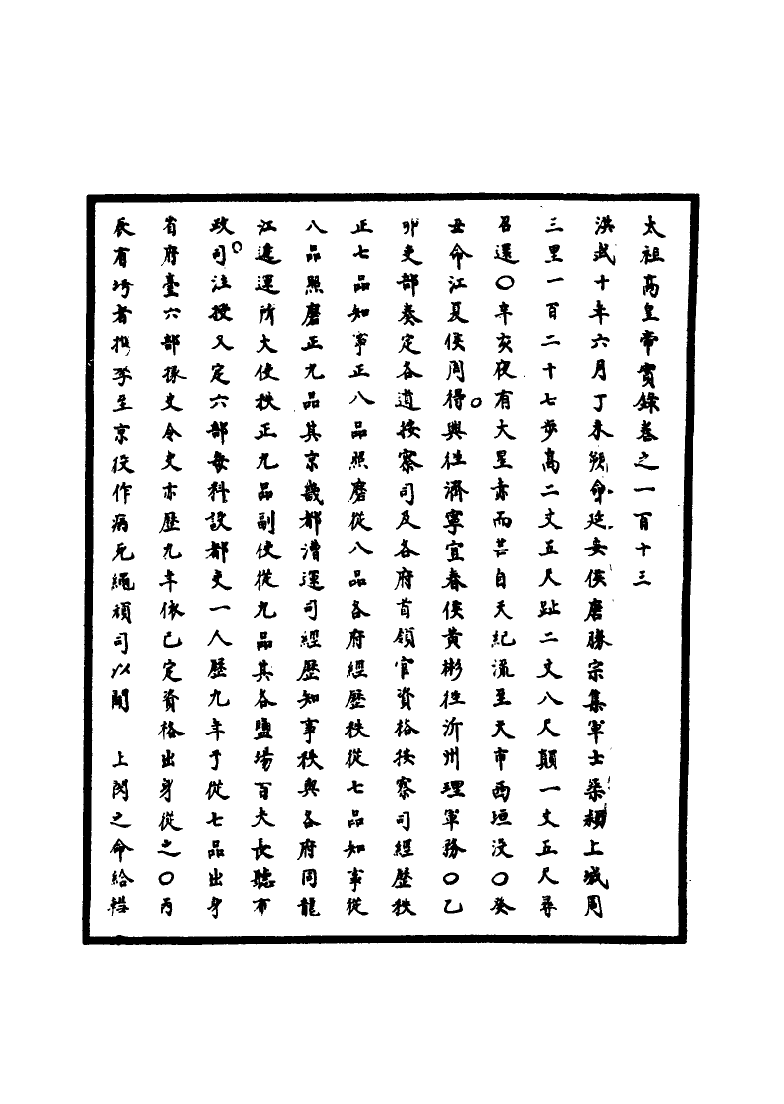 太祖髙皇帝實錄卷之一百十三
洪武十年六月丁未朔命延安侯唐勝宗集軍士築上城周
三里一百二十七步髙二丈五尺趾二丈八尺顛一丈五尺尋
召還○辛亥夜有大星赤而芒自天紀流至天市西垣没○癸
丑命江夏侯周得興往濟寧宜春侯黃彬往沂州理軍務○乙
卯吏部奏定各道按察司及各府首領官資格按察司經歴秩
正七品知事正八品照磨從八品各府經歴秩從七品知事從
八品照磨正九品其京畿都漕運司經歴知事秩與各府同龍
江遞運所大使秩正九品副使從九品其各鹽場百夫長聽布
政司注授又定六部每科設都吏一人歴九年于從七品出身
省府臺六部掾史令史亦歴九年依已定資格出身從之○丙
辰有坊者携孥至京役作病死繩頑司以聞 上閔之命給槥